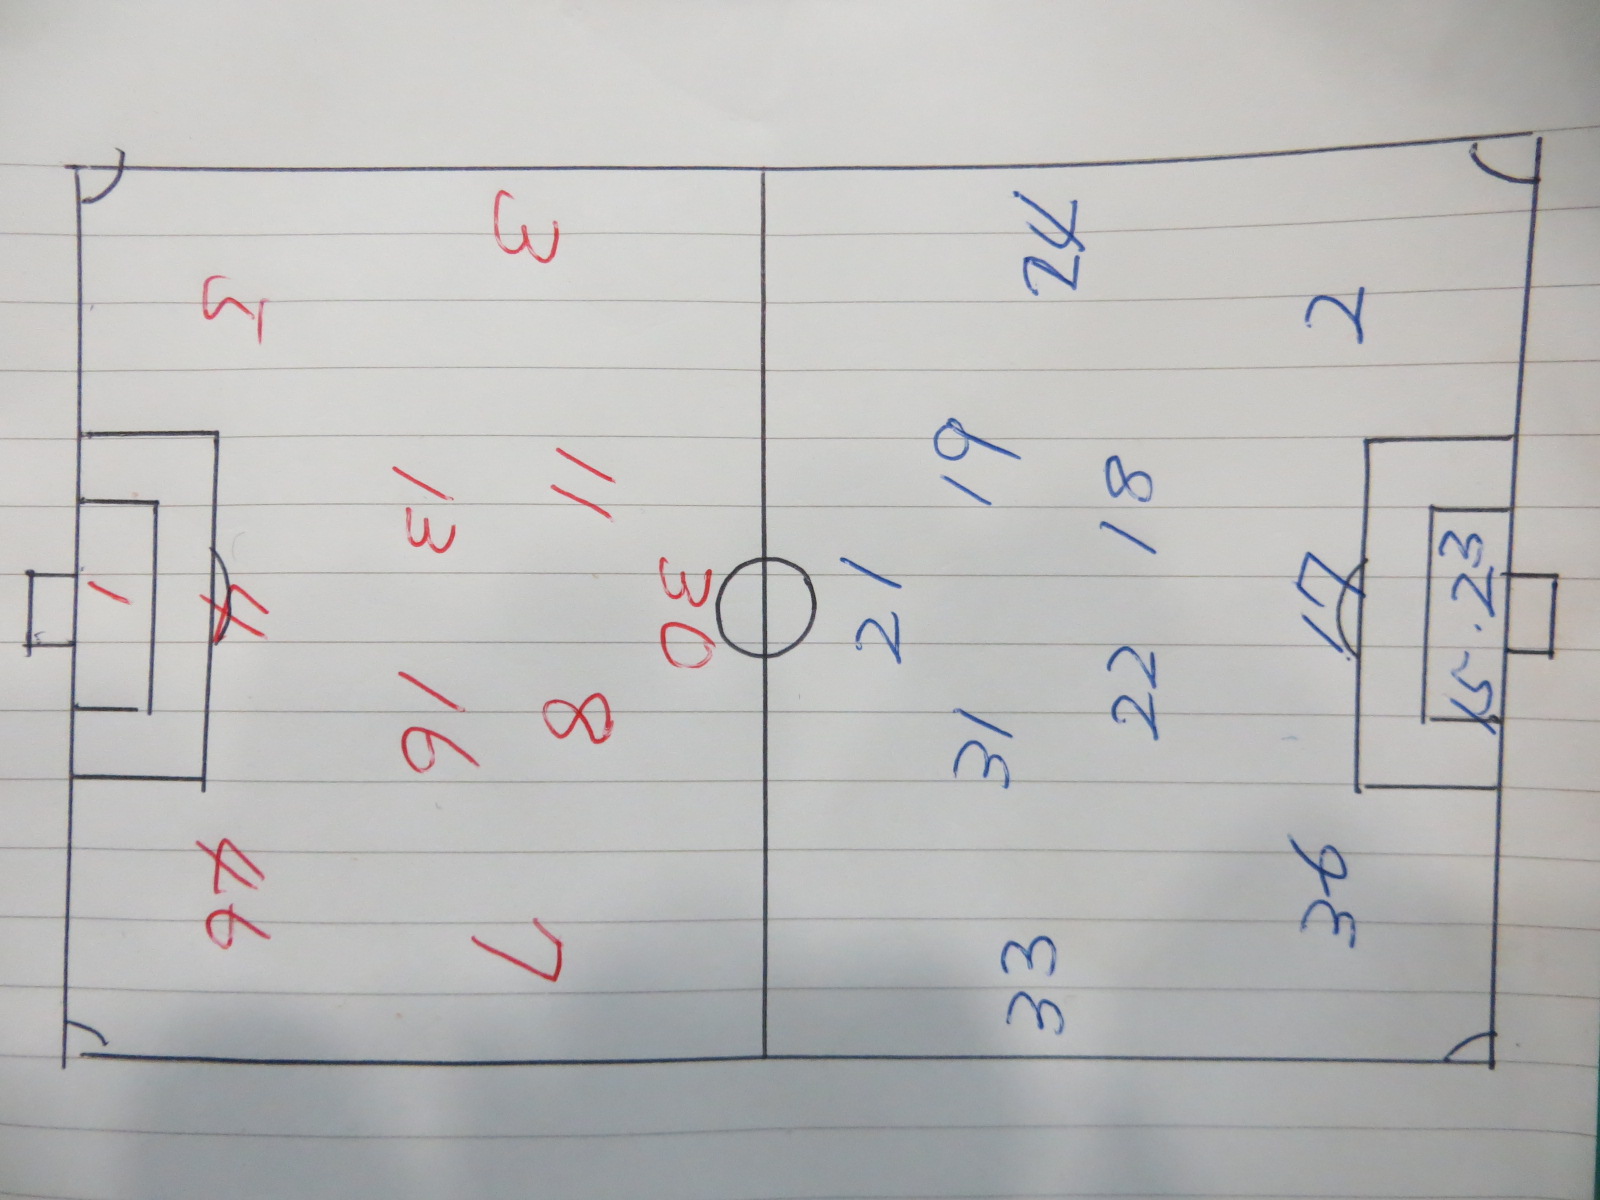 1
5
4
46
3
13
16
7
11
8
30
21
19
31
24
18
22
33
2
17
36
15.23